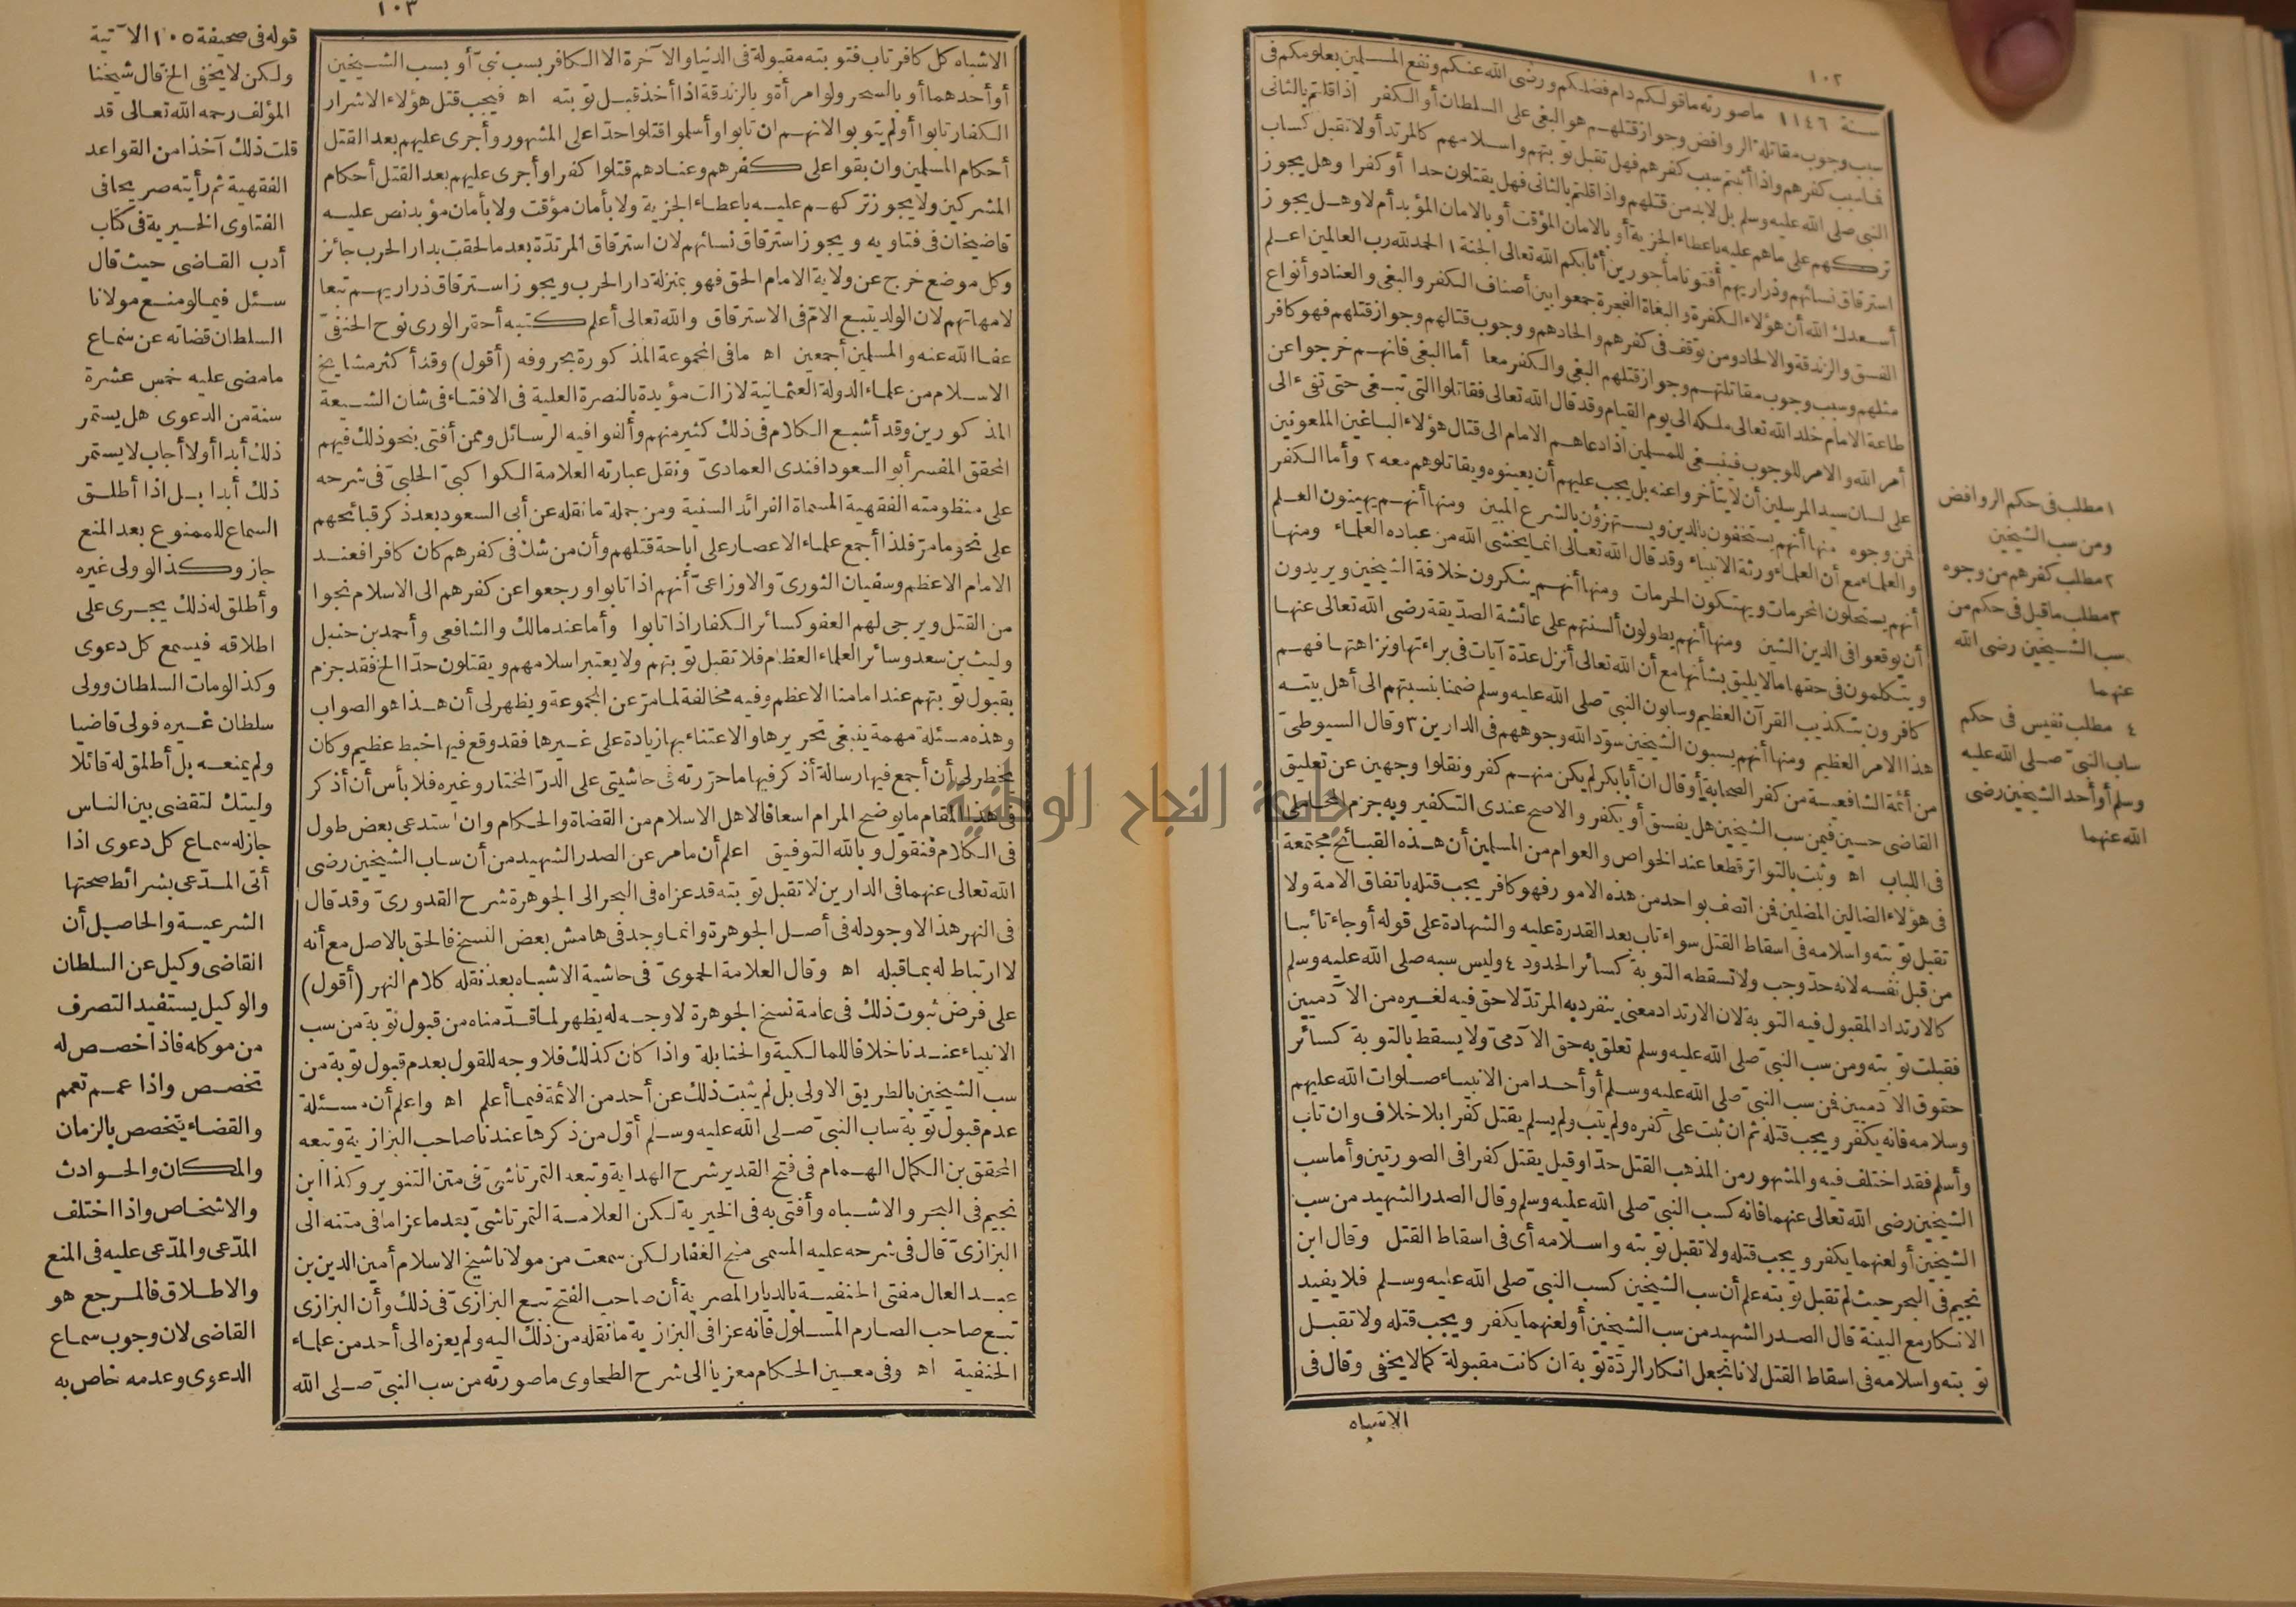 ١٠٢
سنة ١١٤٦ ماصورته ماقولكم دام فضلكم ورضى الله عنكم ونفع المسلمين بعلومكم فى
سبب وجوب مقاتلة الروافض وجواز قتلهم هو البغى على السلطان أو الكفر اذا قلتم بالثانى
فما سبب كفرهم واذا أثبتم سبب كفرهم فهل تقبل توبتهم واسلامهم كالمرتد أولا تقبل كساب
النبى صلى الله عليه وسلم بل لابد من قتلهم واذا قلتم بالثانى فهل يقتلون حدا أو كفرا وهل يجوز
تركهم على ماهم عليه باعطاء الجزية أو بالامان المؤقت أو بالامان المؤبد أم لا وهل يجوز
استرقاق نسائهم وذراريهم أفتونا مأجورين أثابكم الله تعالى الجنة ١ الحمد لله رب العالمين اعلم
أسعدك الله أن هؤلاء الكفرة والبغاة الفجرة جمعوا بين أصناف الكفر والبغى والعناد وأنواع
الفسق والزندقة والالحاد ومن توقف فى كفرهم والحادهم ووجوب قتالهم وجواز قتلهم فهو كافر
مثلهم وسبب وجوب مقاتلتهم وجواز قتلهم البغى والكفر معا أما البغى فانهم خرجوا عن
طاعة الامام خلد الله تعالى ملكه الى يوم القيام وقد قال الله تعالى فقاتلوا التى تبغى حتى تفىء الى
أمر الله والامر للوجوب فينبغى للمسلمين اذا دعاهم الامام الى قتال هؤلاء الباغين الملعونين
على لسان سيد المرسلين أن لا يتأخروا عنه بل يجب عليهم أن يعينوه ويقاتلوهم معه ٢ وأما الكفر
فمن وجوه منها أنهم يستخفون بالدين ويستهزؤن بالشرع المبين ومنها أنهم يهينون العلم
والعلماء مع أن العلماء ورثة الانبياء وقد قال الله تعالى انما يخشى الله من عباده العلماء ومنها
أنهم يستحلون المحرمات ويهتكون الحرمات ومنها أنهم ينكرون خلافة الشيخين ويريدون
أن يوقعوا فى الدين الشين ومنها أنهم يطولون ألسنتهم على عائشة الصديقة رضى الله تعالى عنها
ويتكلمون فى حقها مالا يليق بشأنها مع أن الله تعالى أنزل عدّة آيات فى براءتها ونزاهتها فهم
كافرون بتكذيب القرآن العظيم وسابون النبىّ صلى الله عليه وسلم ضمنا بنسبتهم الى أهل بيته
هذا الامر العظيم ومنها أنهم يسبون الشيخين سوّد الله وجوههم فى الدارين ٣ وقال السيوطىّ
من أئمة الشافعية من كفر الصحابة أو قال ان أبا بكر لم يكن منهم كفر ونقلوا وجهين عن تعليق
القاضى حسين فيمن سب الشيخين هل يفسق أو يكفر والاصح عندى التكفير وبه جزم المحاملى
فى اللباب اه وثبت بالتواتر قطعا عند الخواص والعوام من المسلمين أن هذه القبائح مجتمعة
فى هؤلاء الضالين المضلين فمن اتصف بواحد من هذه الامور فهو كافر يجب قتله باتفاق الامة ولا
تقبل توبته واسلامه فى اسقاط القتل سواء تاب بعد القدرة عليه والشهادة على قوله أو جاء تائبا
من قبل نفسه لانه حدّ وجب ولا تسقطه التوبة كسائر الحدود ٤ وليس سبه صلى الله عليه وسلم
كالارتداد المقبول فيه التوبة لان الارتداد معنى ينفرد به المرتدّ لا حق فيه لغيره من الآدميين
فقبلت توبته ومن سب النبىّ صلى الله عليه وسلم تعلق به حق الآدمىّ ولا يسقط بالتوبة كسائر
حقوق الآدميين فمن سب النبىّ صلى الله عليه وسلم أو أحدا من الانبياء صلوات الله عليهم
وسلامه فانه يكفر ويجب قتله ثم ان ثبت على كفره ولم يتب ولم يسلم يقتل كفرا بلا خلاف وان تاب
وأسلم فقد اختلف فيه والمشهور من المذهب القتل حدّا وقيل يقتل كفرا فى الصورتين وأما سب
الشيخين رضى الله تعالى عنهما فانه كسب النبىّ صلى الله عليه وسلم وقال الصدر الشهيد من سب
الشيخين أو لعنهما يكفر ويجب قتله ولا تقبل توبته واسلامه أى فى اسقاط القتل وقال ابن
نجيم فى البحر حيث لم تقبل توبته علم أن سب الشيخين كسب النبىّ صلى الله عليه وسلم فلا يفيد
الانكار مع البينة قال الصدر الشهيد من سب الشيخين أو لعنهما يكفر ويجب قتله ولا تقبل
توبته واسلامه فى اسقاط القتل لانا نجعل انكار الردّة توبة ان كانت مقبولة كما لا يخفى وقال فى
الاشباه
١ مطلب فى حكم الروافض
ومن سب الشيخين
٢ مطلب كفرهم من وجوه
٣ مطلب ماقيل فى حكم من
سب الشيخين رضى الله
عنهما
٤ مطلب نفيس فى حكم
ساب النبىّ صلى الله عليه
وسلم أو أحد الشيخين رضى
الله عنهما
١٠٣
الاشباه كل كافر تاب فتوبته مقبولة فى الدنيا والآخرة الا الكافر بسب نبىّ أو بسب الشيخين
أو أحدهما أو بالسحر ولو امرأة وبالزندقة اذا أخذ قبل توبته اه فيجب قتل هؤلاء الاشرار
الكفار تابوا أو لم يتوبوا لانهم ان تابوا وأسلموا قتلوا حدّا على المشهور وأجرى عليهم بعد القتل
أحكام المسلمين وان بقوا على كفرهم وعنادهم قتلوا كفرا وأجرى عليهم بعد القتل أحكام
المشركين ولا يجوز تركهم عليه باعطاء الجزية ولا بأمان مؤقت ولا بأمان مؤبد نص عليه
قاضيخان فى فتاويه ويجوز استرقاق نسائهم لان استرقاق المرتدّة بعد ما لحقت بدار الحرب جائز
وكل موضع خرج عن ولاية الامام الحق فهو بمنزلة دار الحرب ويجوز استرقاق ذراريهم تبعا
لامهاتهم لان الولد يتبع الامّ فى الاسترقاق والله تعالى أعلم كتبه أحقر الورى نوح الحنفىّ
عفا الله عنه والمسلمين أجمعين اه مافى المجموعة المذكورة بحروفه (أقول) وقد أكثر مشايخ
الاسلام من علماء الدولة العثمانية لازالت مؤيدة بالنصرة العلية فى الافتاء فى شان الشيعة
المذكورين وقد أشبع الكلام فى ذلك كثير منهم وألفوا فيه الرسائل وممن أفتى بنحو ذلك فيهم
المحقق المفسر أبو السعود افندى العمادىّ ونقل عبارته العلامة الكواكبىّ الحلبىّ فى شرحه
على منظومته الفقهية المسماة الفرائد السنية ومن جملة مانقله عن أبى السعود بعد ذكر قبائحهم
على نحو مامرّ فلذا أجمع علماء الاعصار على اباحة قتلهم وأن من شك فى كفرهم كان كافرا فعند
الامام الاعظم وسفيان الثورىّ والاوزاعىّ أنهم اذا تابوا ورجعوا عن كفرهم الى الاسلام نجوا
من القتل ويرجى لهم العفو كسائر الكفار اذا تابوا وأما عند مالك والشافعى وأحمد بن حنبل
وليث بن سعد وسائر العلماء العظام فلا تقبل توبتهم ولا يعتبر اسلامهم ويقتلون حدّا الخ فقد جزم
بقبول توبتهم عند امامنا الاعظم وفيه مخالفة لما مرّ عن المجموعة ويظهر لى أن هذا هو الصواب
وهذه مسئلة مهمة ينبغى تحريرها والاعتناء بها زيادة على غيرها فقد وقع فيها خبط عظيم وكان
يخطر لى أن أجمع فيها رسالة أذكر فيها ما حررته فى حاشيتى على الدرّ المختار وغيره فلا بأس أن أذكر
فى هذا المقام مايوضح المرام اسعافا لاهل الاسلام من القضاة والحكام وان استدعى بعض طول
فى الكلام فنقول وبالله التوفيق اعلم أن مامر عن الصدر الشهيد من أن ساب الشيخين رضى
الله تعالى عنهما فى الدارين لا تقبل توبته قد عزاه فى البحر الى الجوهرة شرح القدورىّ وقد قال
فى النهر هذا لا وجود له فى أصل الجوهرة وانما وجد فى هامش بعض النسخ فالحق بالاصل مع أنه
لا ارتباط له بما قبله اه وقال العلامة الحموىّ فى حاشية الاشباه بعد نقله كلام النهر (أقول)
على فرض ثبوت ذلك فى عامة نسخ الجوهرة لا وجه له يظهر لما قدّمناه من قبول توبة من سب
الانبياء عندنا خلافا للمالكية والحنابلة واذا كان كذلك فلا وجه للقول بعدم قبول توبة من
سب الشيخين بالطريق الاولى بل لم يثبت ذلك عن أحد من الائمة فيما أعلم اه واعلم أن مسئلة
عدم قبول توبة ساب النبىّ صلى الله عليه وسلم أوّل من ذكرها عندنا صاحب البزازية وتبعه
المحقق بن الكمال الهمام فى فتح القدير شرح الهداية وتبعه التمرتاشىّ فى متن التنوير وكذا ابن
نجيم فى البحر والاشباه وأفتى به فى الخيرية لكن العلامة التمرتاشىّ بعد ما عزاما فى متنه الى
البزازىّ قال فى شرحه عليه المسمى منح الغفار لكن سمعت من مولانا شيخ الاسلام أمين الدين بن
عبد العال مفتى الحنفية بالديار المصرية أن صاحب الفتح تبع البزازىّ فى ذلك وأن البزازى
تبع صاحب الصارم المسلول فانه عزا فى البزازية مانقله من ذلك اليه ولم يعزه الى أحد من علماء
الحنفية اه وفى معين الحكام معزيا الى شرح الطحاوى ماصورته من سب النبىّ صلى الله
قوله فى صحيفة ١٠٥ الآتية
ولكن لا يخفى الخ قال شيخنا
المؤلف رحمه الله تعالى قد
قلت ذلك آخذا من القواعد
الفقهية ثم رأيته صريحا فى
الفتاوى الخيرية فى كتاب
أدب القاضى حيث قال
سئل فيما لو منع مولانا
السلطان قضاته عن سماع
مامضى عليه خمس عشرة
سنة من الدعوى هل يستمر
ذلك أبدا أولا أجاب لا يستمر
ذلك أبدا بل اذا أطلق
السماع للممنوع بعد المنع
جاز وكذا لو ولى غيره
وأطلق له ذلك يجرى على
اطلاقه فيسمع كل دعوى
وكذا لو مات السلطان وولى
سلطان غيره فولى قاضيا
ولم يمنعه بل أطلق له قائلا
وليتك لتقضى بين الناس
جاز له سماع كل دعوى اذا
أتى المدّعى بشرائط صحتها
الشرعية والحاصل أن
القاضى وكيل عن السلطان
والوكيل يستفيد التصرف
من موكله فاذا خصص له
تخصص واذا عمم تعمم
والقضاء يتخصص بالزمان
والمكان والحوادث
والاشخاص واذا اختلف
المدّعى والمدّعى عليه فى المنع
والاطلاق فالمرجع هو
القاضى لان وجوب سماع
الدعوى وعدمه خاص به
جامعة النجاح الوطنية